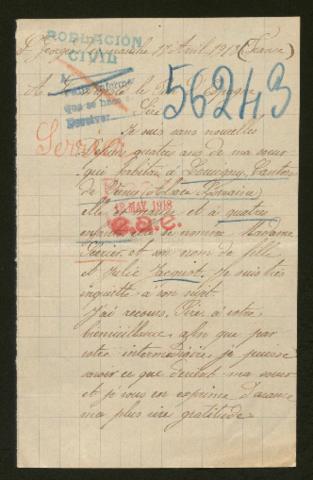 POBLACIÓN
CIVIL
St Georges Avril 1918 (France)
A Sa Majesté le Roi d'Espagne
56243
Sire
Servic
Je suis sans nouvelles
depuis quatre ans de ma sœur
qui habitait à Louvigny, Canton
de Verny (Alsace-Lorraine)
MAY. 1918
elle est mariée et à quatre
enfants elle se nomme Madame
et son nom de fille
est Julie Jacquot. Je suis très
inquiette à son sujet.
J'ai recours, Sire, à votre
bienveillance, afin que par
votre intermédiaire, je puisse
savoir ce que devient ma sœur
et je vous en exprime d'avance
ma plus vive gratitude.